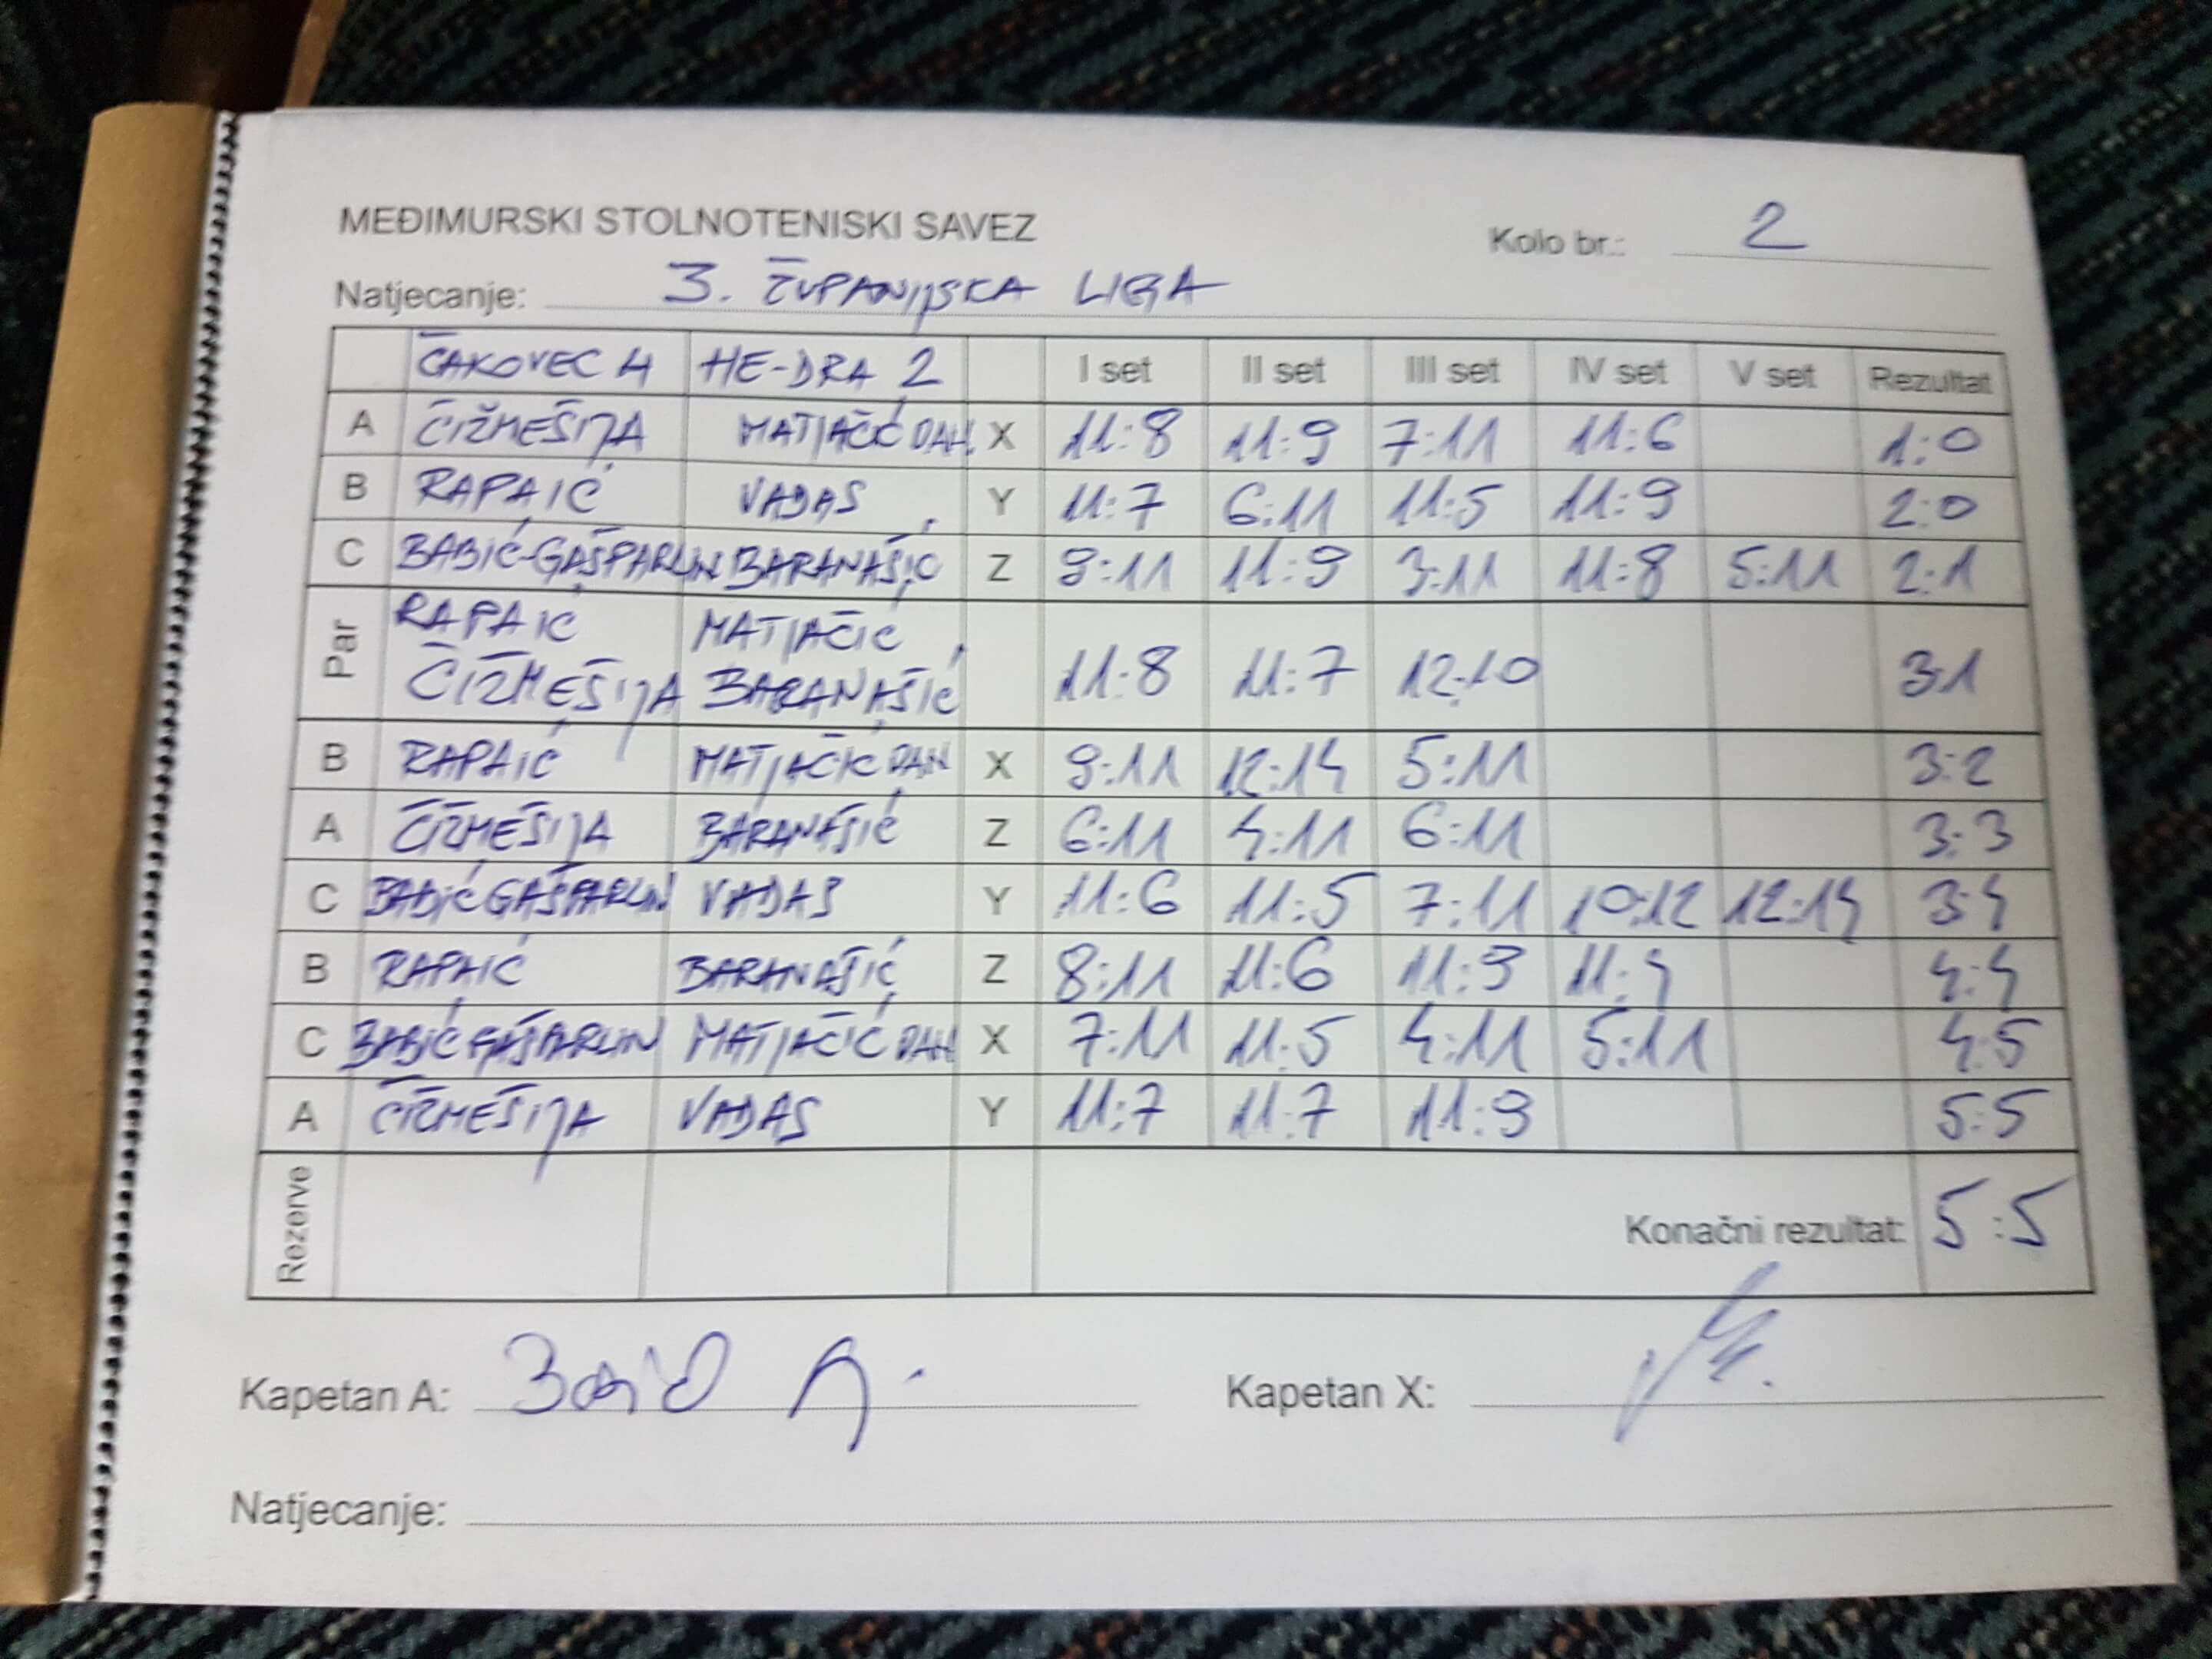 MEĐIMURSKI STOLNOTENISKI SAVEZ
Kolo br.: 2
Natjecanje: 3. ŽUPANIJSKA LIGA
ČAKOVEC 4 HE-DRA 2 I set II set III set IV set V set Rezultat
A ČIŽMEŠIJA MATJAČIĆ DAN. X 11:8 11:9 7:11 11:6 1:0
B RAPAIĆ VADAS Y 11:7 6:11 11:5 11:9 2:0
C BABIĆ-GAŠPARLIN BARANAŠIĆ Z 9:11 11:9 3:11 11:8 5:11 2:1
Par RAPAIĆ MATJAČIĆ
ČIŽMEŠIJA BARANAŠIĆ 11:8 11:7 12:10 3:1
B RAPAIĆ MATJAČIĆ DAN X 9:11 12:14 5:11 3:2
A ČIŽMEŠIJA BARANAŠIĆ Z 6:11 4:11 6:11 3:3
C BABIĆ GAŠPARLIN VADAS Y 11:6 11:5 7:11 10:12 12:14 3:4
B RAPAIĆ BARANAŠIĆ Z 8:11 11:6 11:9 11:4 4:4
C BABIĆ GAŠPARLIN MATJAČIĆ DAN X 7:11 11:5 4:11 5:11 4:5
A ČIŽMEŠIJA VADAS Y 11:7 11:7 11:9 5:5
Rezerve Konačni rezultat: 5:5
Kapetan A: Kapetan X:
Natjecanje: